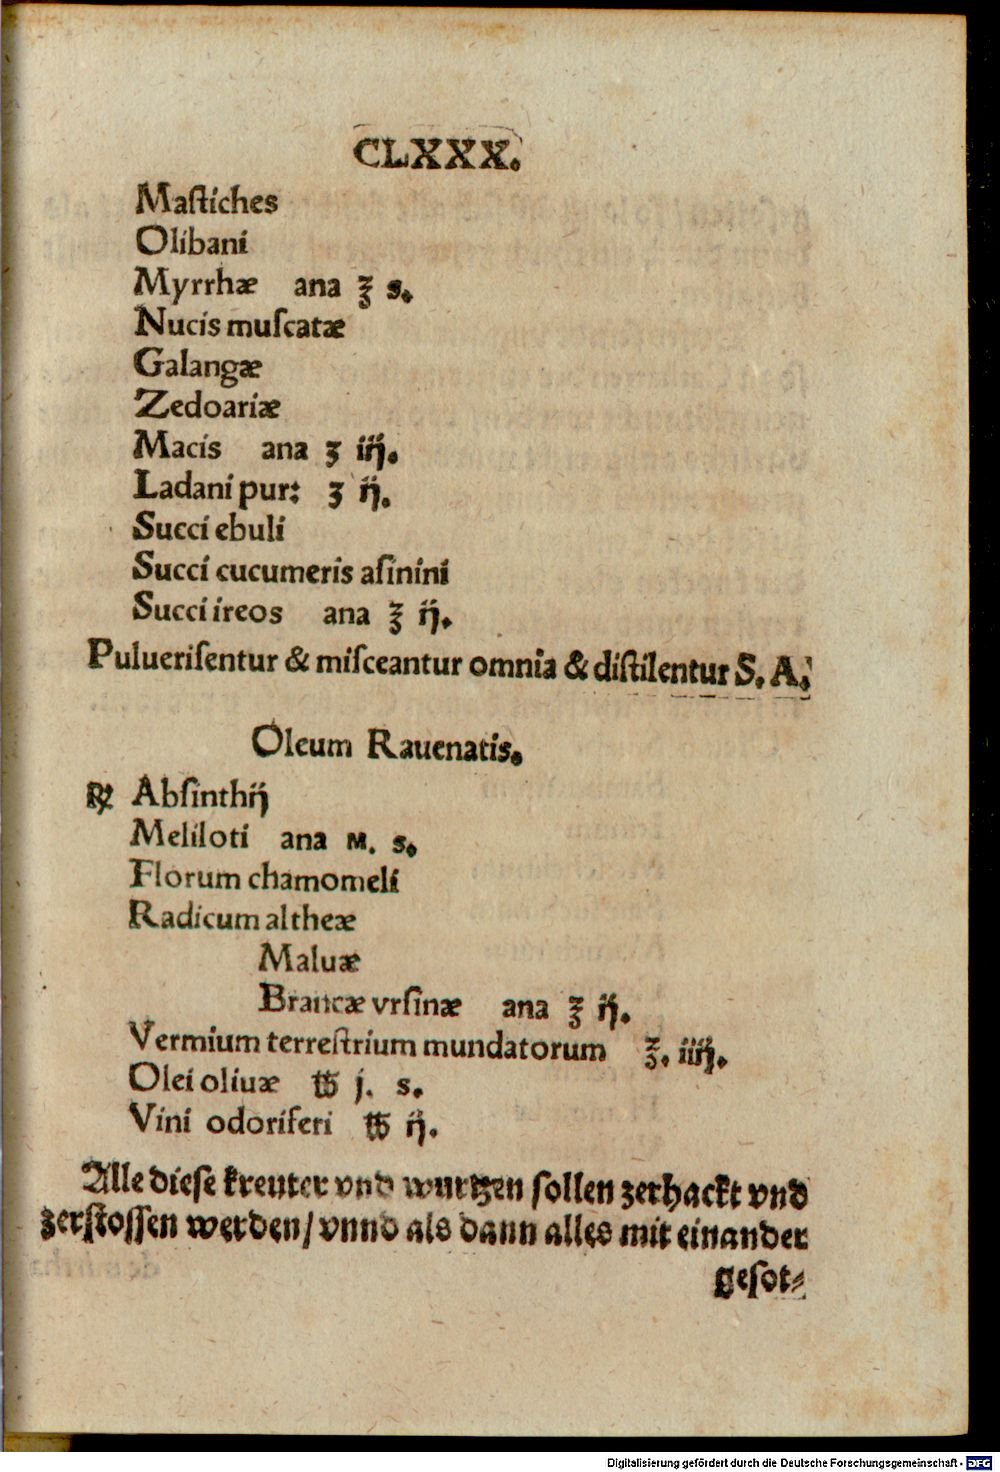 CLXXX.
Maſtiches
Olibani
Myrrhæ ana ℥ s.
Nucis muſcatæ
Galangæ
Zedoariæ
Macis ana ʒ iij.
Ladani pur: ʒ ij.
Succi ebuli
Succi cucumeris aſinini
Succi ireos ana ℥ ij.
Pulueriſentur & miſceantur omnia & diſtilentur S. A.
Oleum Rauenatis.
℞ Abſinthij
Meliloti ana M. s.
Florum chamomeli
Radicum altheæ
Maluæ
Brancæ vrſinæ ana ℥ ij.
Vermium terreſtrium mundatorum ℥. iiij.
Olei oliuæ ℔ j. s.
Vini odoriferi ℔ ij.
Alle dieſe kreuter vnd wurtzen ſollen zerhackt vnd
zerſtoſſen werden/ vnnd als dann alles mit einander
geſot⸗
Digitalisierung gefördert durch die Deutsche Forschungsgemeinschaft - DFG